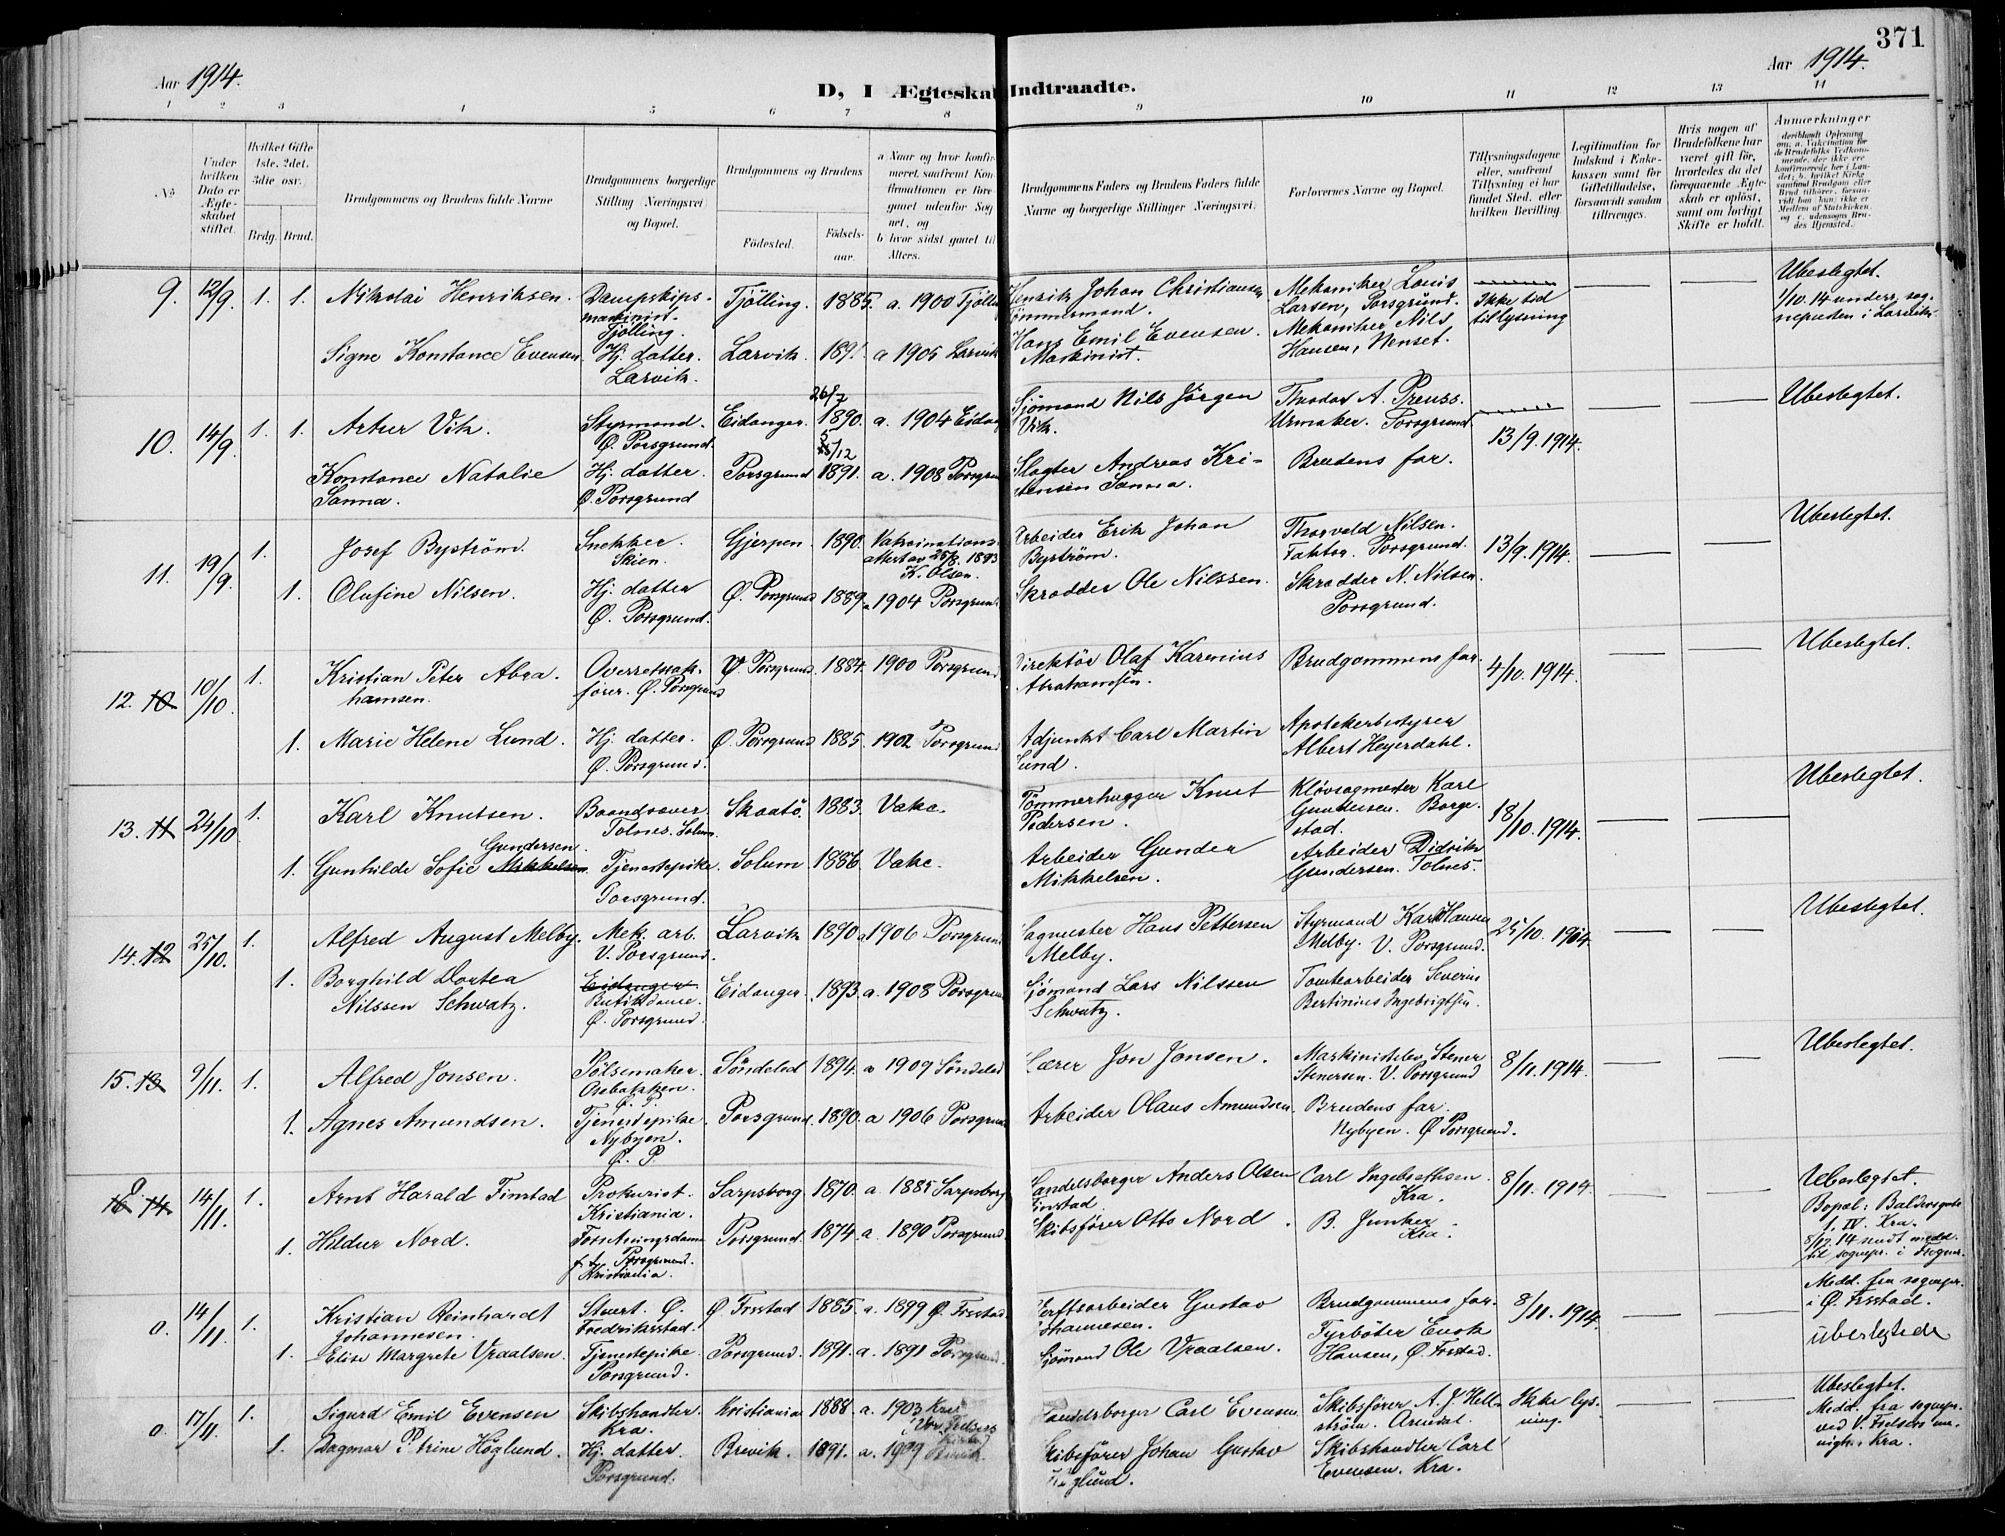 371
Aar 1914.
Aar 1914.
D, I Ægteskab Indtraadte.
1 2 3 4 5 6 7 8 9 10 11 12 13 14
No
Under hvilken Dato er Ægteskabet stiftet.
Hvilket Gifte 1ste, 2det, 3die osv.
Brdg. Brud.
Brudgommens og Brudens fulde Navne
Brudgommens borgerlige Stilling Næringsvei og Bopæl.
Brudgommens og Brudens
Fødested.
Fødselsaar.
a Naar og hvor konfirmeret, saafremt Konfirmationen er foregaaet udenfor Sognet, og
b hvor sidst gaaet til Alters.
Brudgommens Faders og Brudens Faders fulde Navne og borgerlige Stillinger Næringsvei.
Forlovernes Navne og Bopæl.
Tillysningsdagene eller, saafremt Tillysning ei har fundet Sted, efter hvilken Bevilling
Legitimation for Indskud i Enkekassen samt for Giftetilladelse, forsaavidt saadan tiltrænges.
Hvis nogen af Brudefolkene har været gift før, hvorledes da det foregaaende Ægteskab er opløst, samt om lovligt Skifte er holdt.
Anmærkninger
9. 12/9. 1. 1. Nikolai Henriksen. Dampskipsmaskinist. Tjölling. Tjölling. 1885. a. 1900 Tjölling
Henrik Johan Christiansen Tömmermand. Mekaniker Louis Larsen, Porsgrund. Ikke tid tillysning
Ubeslegtet. 1/10.14 underr. sognepresten i Larvik.
Signe Konstance Evensen Hj. datter. Larvik. Larvik. 1891 a 1905 Larvik
Hans Emil Evensen. Maskinist. Mekaniker Nils Hansen, Henset.
10. 14/9. 1. 1. Artur Vik. Styrmand. Ø. Porsgrund. Eidanger. 26/7 1890. a. 1904 Eidang
Sjömand Nils Jörgen Vik. Theodor A. Preuss. Urmaker. Porsgrund. 13/9.1914. Ubeslegtet.
Konstance Natalie Sanna. Hj. datter. Ø. Porsgrund Porsgrund 5/12 1891. a. 1908 Porsgrun
Slagter Andreas Kristensen Sanna. Brudens far.
11. 19/9. 1. Josef Byström. Snekker. Skien. Gjerpen. 1890. Vakcinationsattest av 25/8. 1893 K. Olsen.
Arbeider Erik Johan Byström. Thorvald Nilsen. Faktor. Porsgrund. 13/9.1914. Ubeslegtet.
1. Olufine Nilsen. Hj. datter Ø. Porsgrund. Ø. Porsgrund 1889 a 1904 Porsgrun
Skrædder Ole Nilssen. Skrædder N. Nilsen Porsgrund.
12. 10. 10/10. 1. Kristian Peter Abrahamsen. Overretssakfører. Ø. Porsgrund Ø. Porsgrund. 1884. 1900 Porsgrund
Direktör Olaf Karenius Abrahamsen. Brudgommens far. 4/10.1914. Ubeslegtet.
1. Marie Helene Lund. Hj. datter. Ø. Porsgrund. Ø. Porsgrund 1885. 1902 Porsgrund
Adjunkt Carl Martin Lund. Apotekerbestyrer Albert Heyerdahl.
13. 11. 24/10. 1. Karl Knutsen. Baandsaver. Tolnes. Solum. Skaatö. 1883. Vakc.
Tömmerhugger Knut Pedersen. Klövsagmester Karl Gundersen. Borgestad. 18/10.1914. Ubeslegtet.
1. Gunhilde Sofie Mikkelsen Gundersen. Tjenestepike. Porsgrund. Solum 1886. Vakc.
Arbeider Gunder Mikkelsen. Arbeider Didrik Gundersen. Tolnes.
14. 12 25/10. 1. Alfred August Melby. Mek. arb. V. Porsgrund. Larvik 1890 a 1906 Porsgrun
Sagmester Hans Pettersen Melby. Styrmand Karl Hansen Melby. V. Porsgrund. 25/10.1914. Ubeslegtet.
1. Borghild Dortea Nilssen Schwatz. Eidanger Butikdame. Ø. Porsgrund. Eidanger. 1893. a. 1908 Porsgrun
Sjömand Lars Nilssen Schwatz. Tomtearbeider Severin Bertinius Ingebrigtsen.
15. 13 9/11. 1. Alfred Jonsen. Pölsemaker. Osebakken. Ø. P. Söndeled 1894. a 1909 Söndeled
Lærer Jon Jonsen. Maskinistelev Stener Stenersen. V. Porsgrund 8/11.1914. Ubeslegtet.
1. Agnes Amundsen. Tjenestepike. Nybyen. Ø. P. Porsgrund. 1890. a 1906 Porsgrun
Arbeider Olaus Amundsen. Brudens far. Nybyen. Ø Porsgrund.
0 16 14. 14/11. 1. Arnt Harald Finstad Prokurist. Kristiania. Sarpsborg 1870. a. 1885 Sarpsborg
Handelsborger Anders Olsen Finstad. Carl Ingebrethsen. Kra. 8/11.1914. Ubeslegtet.
Bopæl: Baldersgate 1. IV. Kra. 8/12.14 sendt medd. til sognepr. i Frogner.
1. Hildur Nord. Forretningsdame f. t. Porsgrund. Kristiania. Porsgrund. 1874. a. 1890 Porsgrund.
Skibsfører Otto Nord. B. Juncker Kra.
0. 14/11. 1. Kristian Reinhardt Johannesen. Stuert. Ø. Fredriksstad. Ø Frstad 1885. a. 1899 Ø. Frstad.
Johannesen. Brudgommens far. 8/11.1914. Medd. fra sognepr. i Ø. Frstad. ubeslegtede
1. Elise Margrete Vraalsen. Tjenestepike Porsgrund. Porsgrund. 1891. a. 1891 Porsgrund.
Sjömand Ole Vraalsen. Fyrböter Enok Hansen, Ø. Frstad.
0. 17/11. 1. Sigurd Emil Evensen Skibshandler. Kra. Kristiania 1888. a. 1903 Kra.
Handelsborger Carl Evensen Skibsfører A. J. Hellström. Arendal. Ikke lysning. Ubeslegtet. Medd. fra sognepr. ved V. Frelsers menigh. Kra.
1. Dagmar Petrine Höglund. Hj. datter Porsgrund. Brevik. 1891. a. 1909 Brevik.
Skibsfører Johan Gustav Höglund. Skibshandler Carl Evensen. Kra.